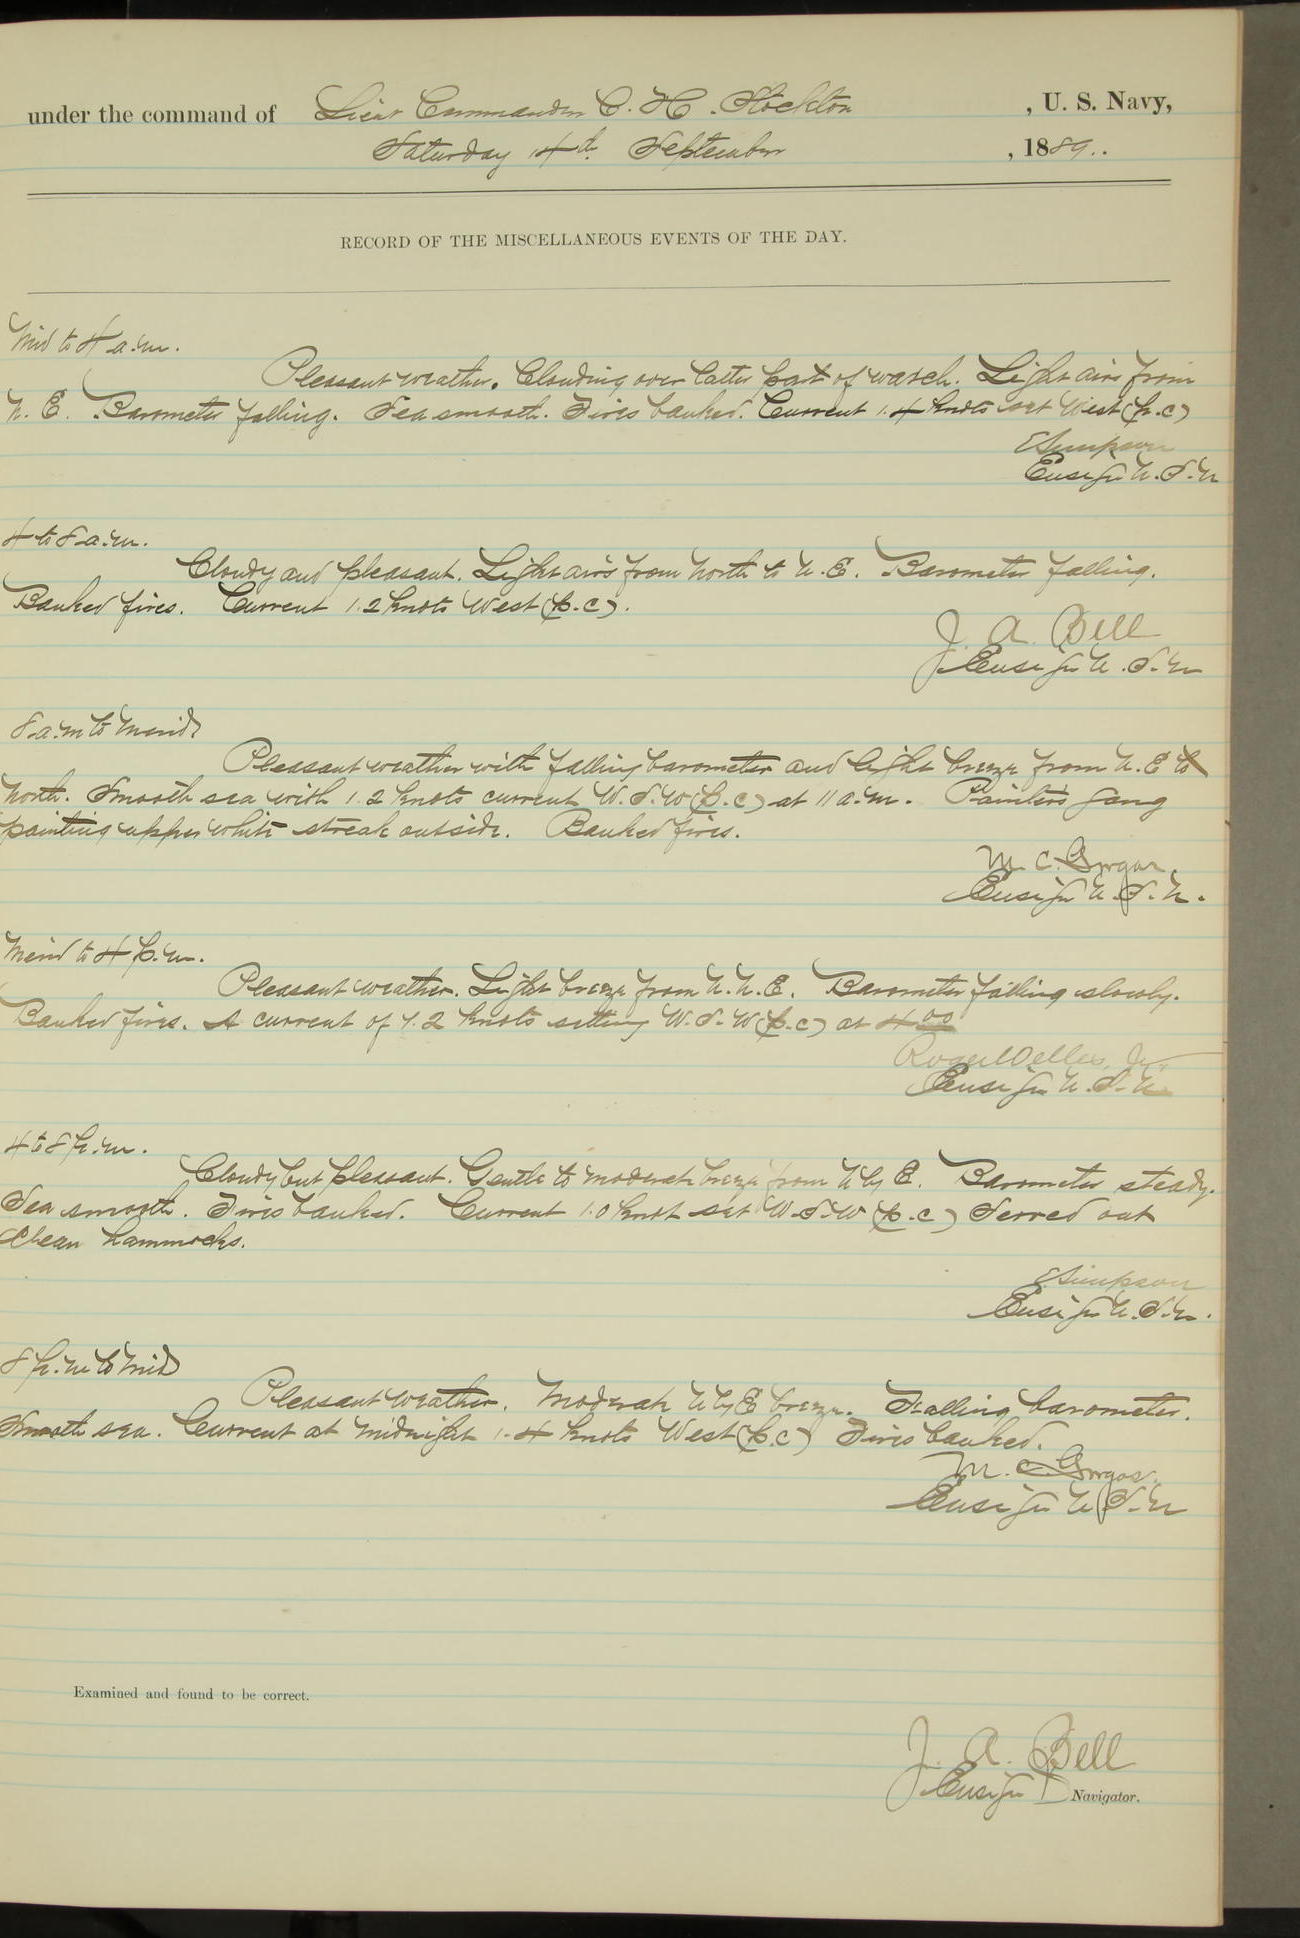 under the command of Lieut Commander C. H. Stockton , U. S. Navy,
Saturday 14th September , 1889..
RECORD OF THE MISCELLANEOUS EVENTS OF THE DAY.
Mid to 4 a.m.
Pleasant weather. Clouding over latter part of watch. Light airs from
N. E. Barometer falling. Sea smooth. Fires banked. Current 1.4 knots set West (p.c)
E Simpson
Ensign U.S.N
4 to 8 a.m.
Cloudy and pleasant. Light airs from North to N.E. Barometer falling.
Banked fires. Current 1.2 knots West (p.c).
J. A. Bell
Ensign U.S.N
8 a.m to Merid.
Pleasant weather with falling barometer and light breeze from N.E to
North. Smooth sea with 1.2 knots current W.S.W (p.c) at 11 a.m. Painters gang
painting upper white streak outside. Banked fires.
M. C. Gorgas.
Ensign U.S.N.
Merid to 4 p.m.
Pleasant weather. Light breeze from N.N.E. Barometer falling slowly.
Banked fires. A current of 1.2 knots setting W.S.W (p.c) at 4 00
Roger Welles, Jr.
Ensign U.S.N
4 to 8 p.m.
Cloudy but pleasant. Gentle to moderate breeze from N by E. Barometer steady.
Sea smooth. Fires banked. Current 1.0 knot set W.S.W (p.c) Served out
clean hammocks.
E Simpson
Ensign U.S.N.
8 p.m to mid
Pleasant weather. Moderate N by E breeze. Falling barometer.
Smooth sea. Current at midnight 1.4 knots West (p.c) Fires banked.
M. C. Gorgas.
Ensign U.S.N
Examined and found to be correct.
J. A. Bell
Ensign Navigator.